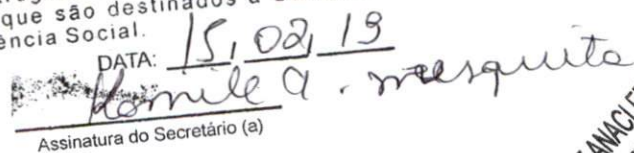 que são destinados a
ência Social.
DATA: 15, 02, 19
Kamile A. mesquita
Assinatura do Secretário (a)
ANACLE